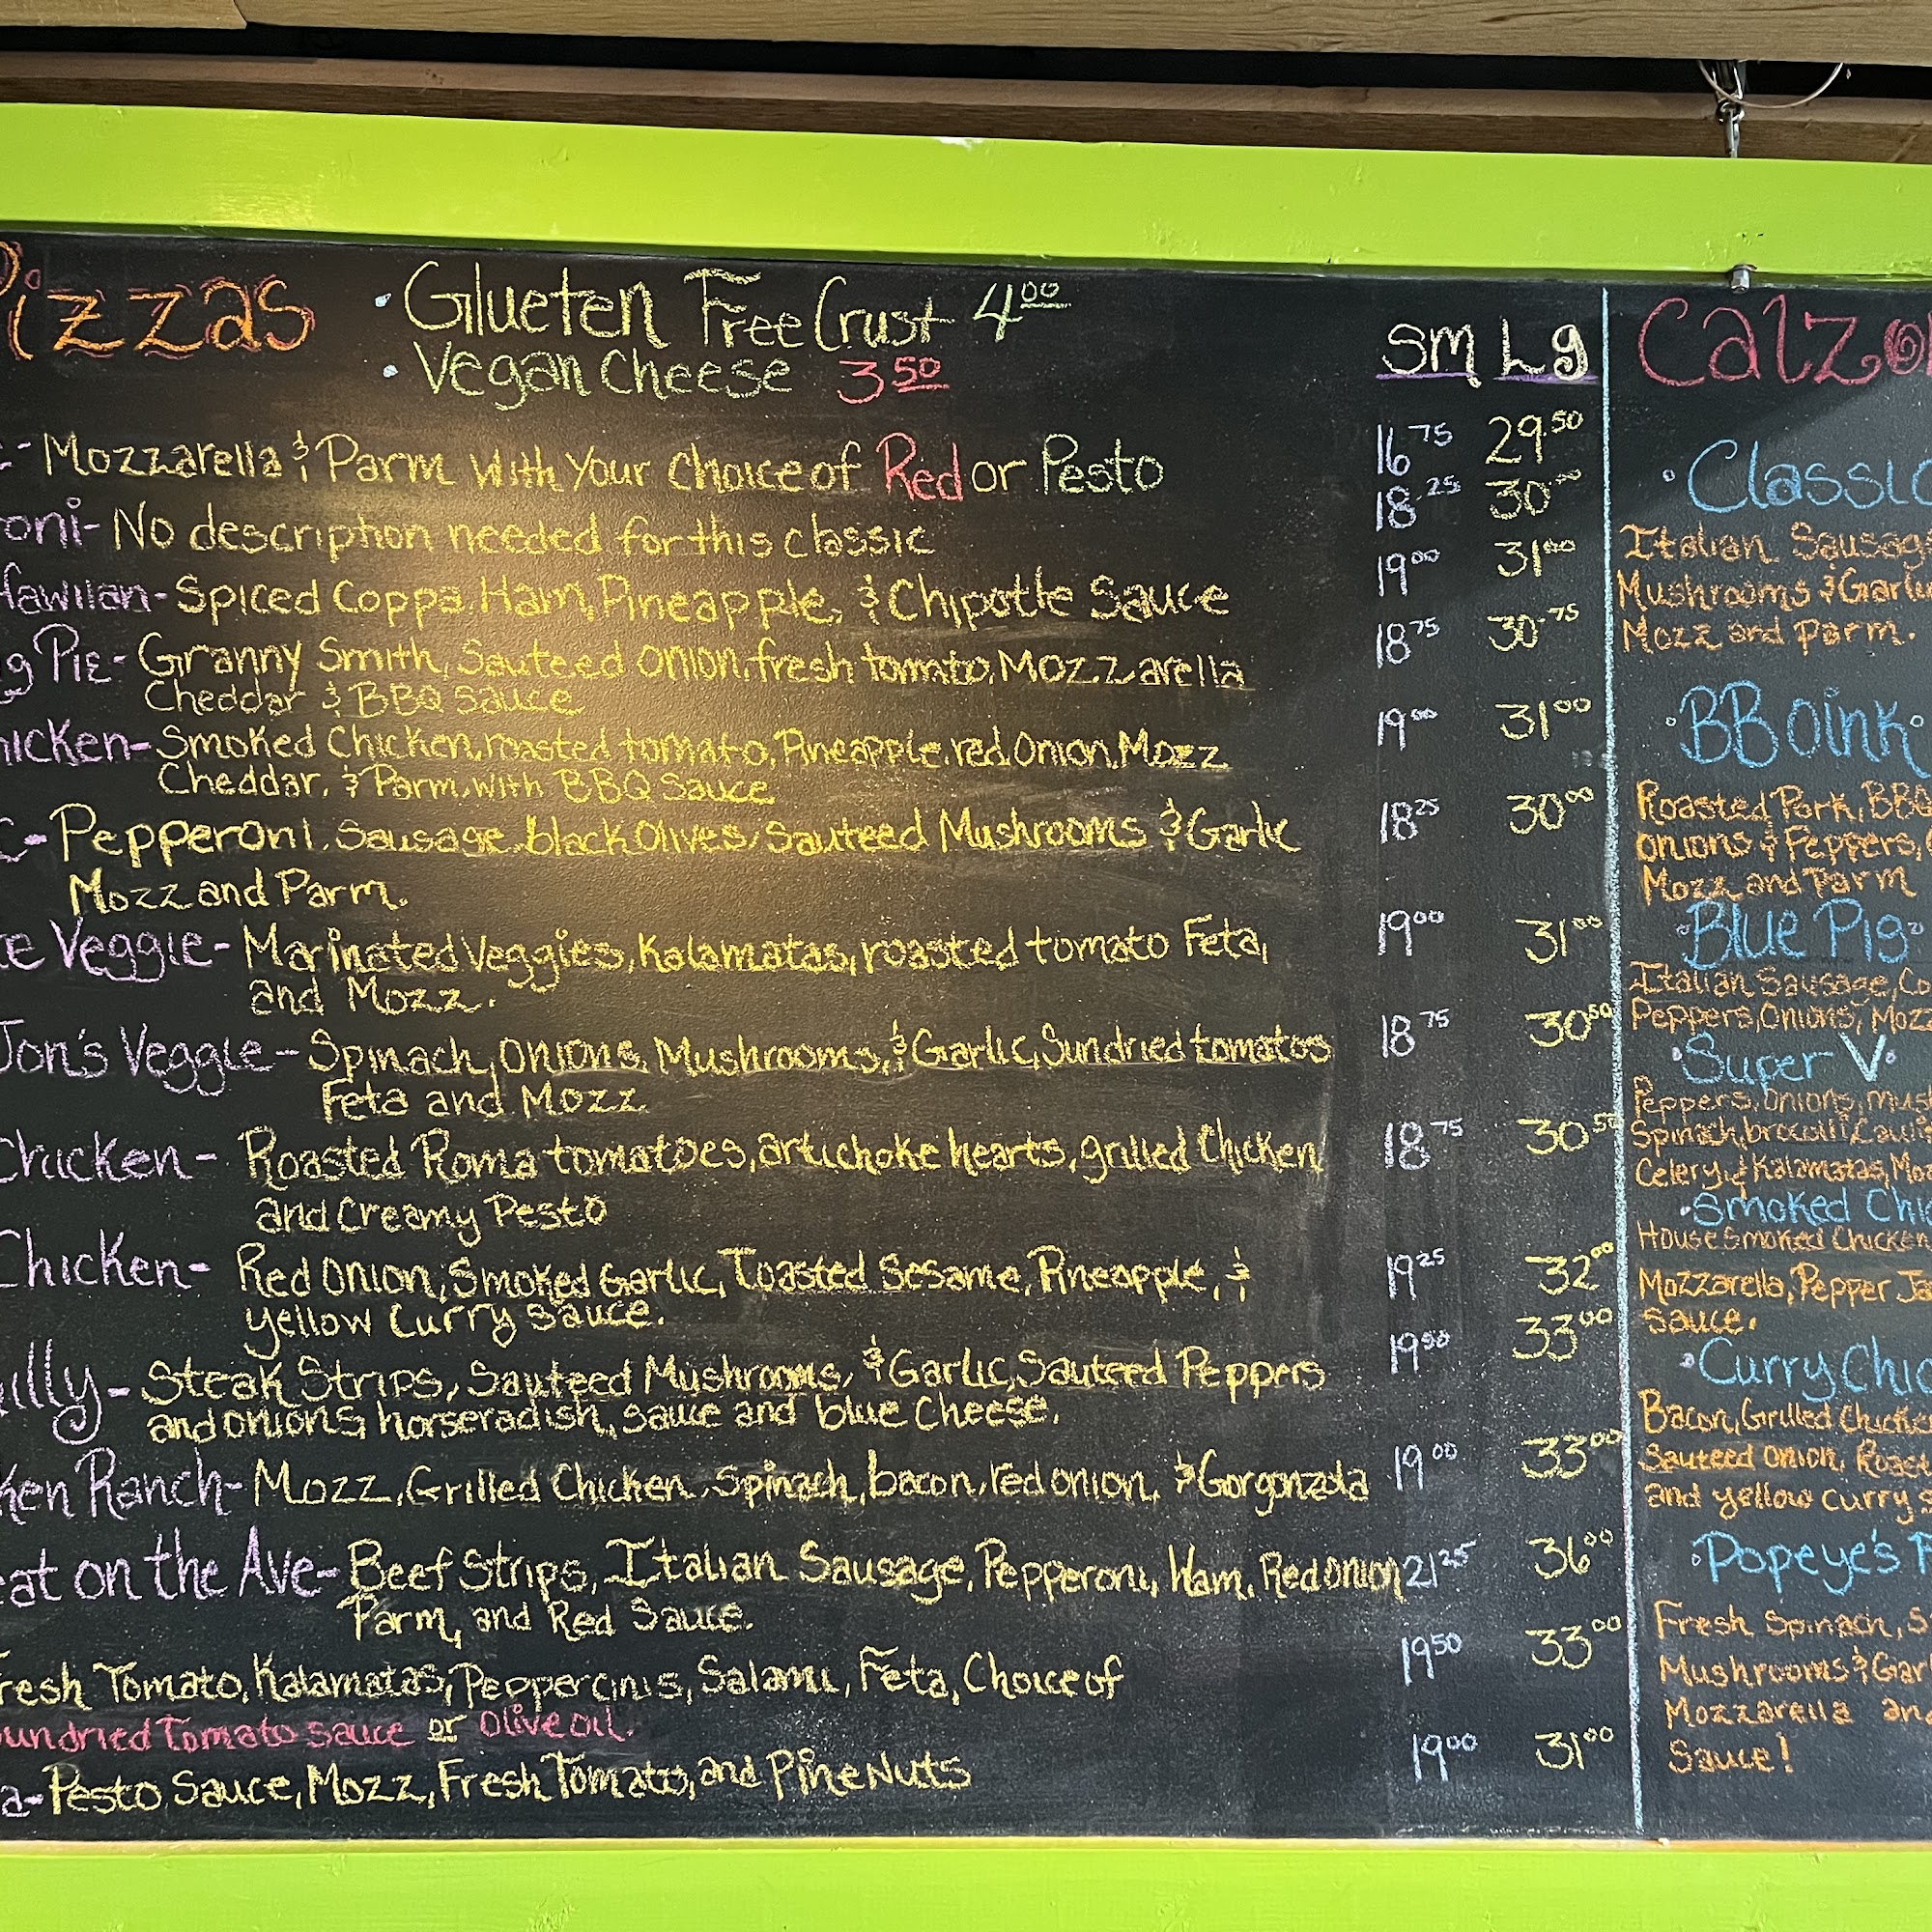 Pizzas
• Glueten Free Crust 4.00
• Vegan Cheese 3.50
Sm Lg
Mozzarella & Parm with Your choice of Red or Pesto 16.75 29.50
oni- No description needed for this classic 18.25 30.00
Hawiian- Spiced Coppa, Ham, Pineapple, & Chipotle Sauce 19.00 31.00
g Pie- Granny Smith, Sauteed onion, fresh tomato, Mozzarella 18.75 30.75
Cheddar & BBQ sauce
hicken- Smoked Chicken, roasted tomato, Pineapple, red Onion, Mozz 19.00 31.00
Cheddar, & Parm, with BBQ Sauce
c- Pepperoni, Sausage, black Olives, Sauteed Mushrooms & Garlic 18.25 30.00
Mozz and Parm.
te Veggie- Marinated Veggies, Kalamatas, roasted tomato Feta, 19.00 31.00
and Mozz.
Jon's Veggie- Spinach, Onions, Mushrooms, & Garlic, Sundried tomatos 18.75 30.50
Feta and Mozz
Chicken- Roasted Roma tomatoes, artichoke hearts, grilled Chicken 18.75 30.50
and Creamy Pesto
Chicken- Red Onion, Smoked Garlic, Toasted Sesame, Pineapple, & 19.25 32.00
yellow Curry sauce.
illy- Steak Strips, Sauteed Mushrooms, & Garlic, Sauteed Peppers 19.50 33.00
and onions, horseradish, sauce and blue Cheese.
ken Ranch- Mozz, Grilled Chicken, Spinach, bacon, red onion, & Gorgonzola 19.00 33.00
eat on the Ave- Beef Strips, Italian Sausage, Pepperoni, Ham, Red onion 21.25 36.00
Parm, and Red Sauce.
resh Tomato, Kalamatas, Peppercinis, Salami, Feta, Choice of 19.50 33.00
undried Tomato sauce or olive oil.
a- Pesto Sauce, Mozz, Fresh Tomatos, and Pine Nuts 19.00 31.00
Calzo
• Classic
Italian Sausag
Mushrooms & Garlic
Mozz and parm.
• BB oink •
Roasted Pork, BBQ
onions & Peppers,
Mozz and Parm
• Blue Pig •
Italian Sausage, Co
Peppers, Onions, Mozz
• Super V •
Peppers, Onions, mush
Spinach, brocolli, Cauli
Celery, & Kalamatas, Mo
• Smoked Chic
House Smoked Chicken
Mozzarella, Pepper Ja
sauce.
• Curry Chic
Bacon, Grilled Chicke
Sauteed onion, Roast
and yellow curry s
• Popeye's P
Fresh Spinach, S
Mushrooms & Garl
Mozzarella and
Sauce!